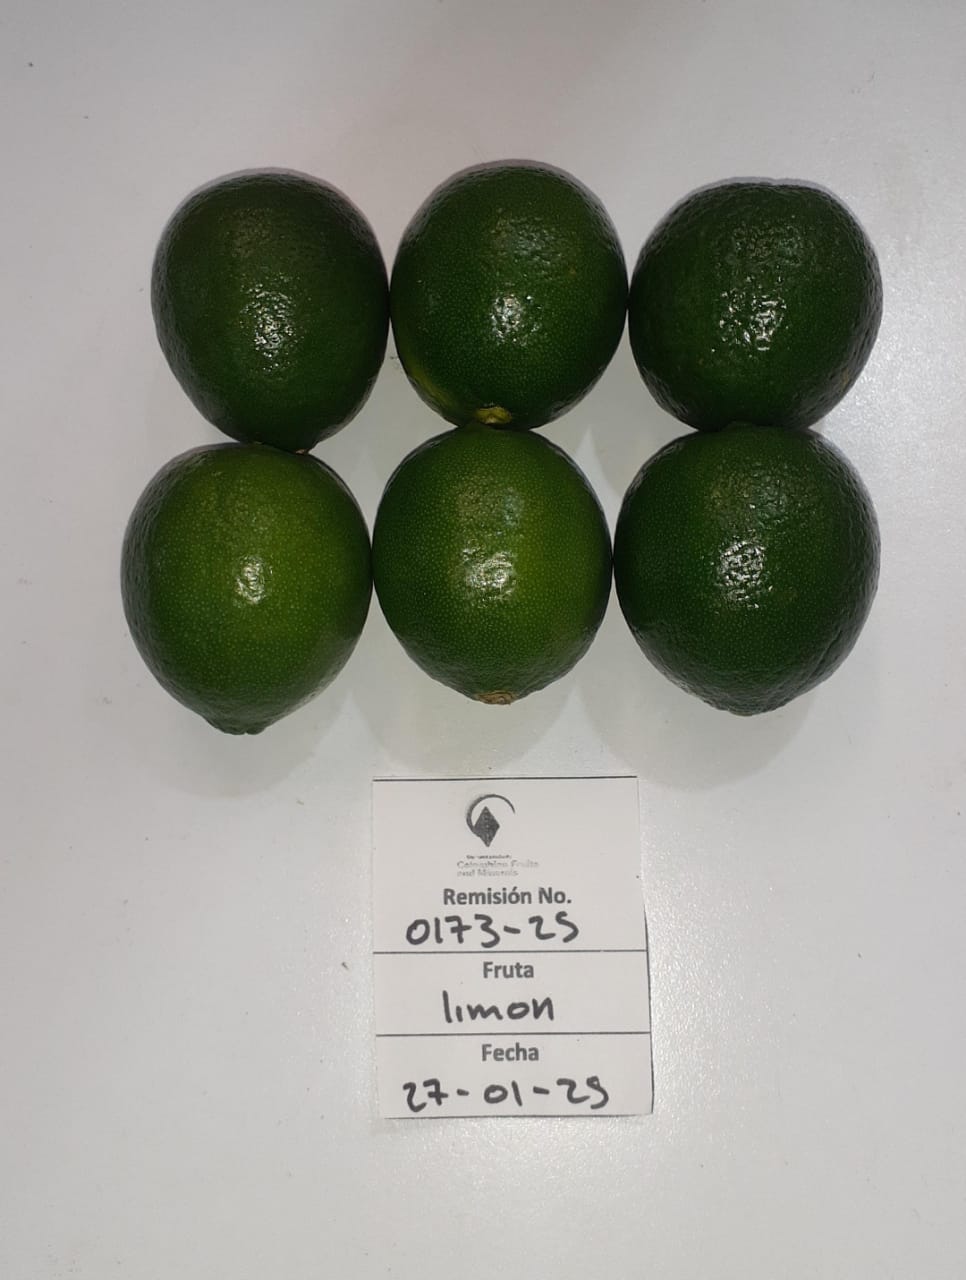 Colombian Fruits
and Minerals
Remisión No.
0173-25
Fruta
limon
Fecha
27-01-25